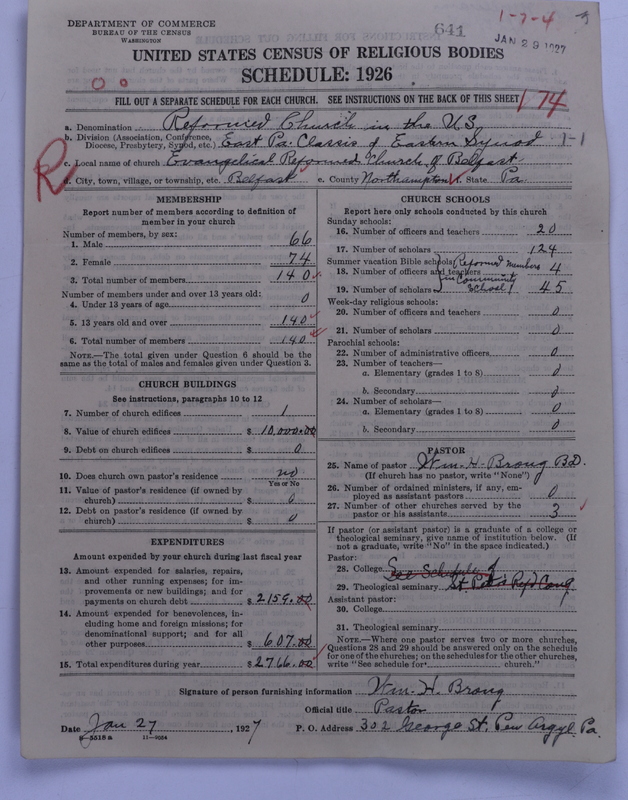 DEPARTMENT OF COMMERCE
BUREAU OF THE CENSUS
WASHINGTON
641
1-7-4
JAN 29 1927
UNITED STATES CENSUS OF RELIGIOUS BODIES
SCHEDULE: 1926
FILL OUT A SEPARATE SCHEDULE FOR EACH CHURCH. SEE INSTRUCTIONS ON THE BACK OF THIS SHEET
174
a. Denomination Reformed Church in the U.S.
b. Division (Association, Conference, Diocese, Presbytery, Synod, etc.) East Pa. Classis of Eastern Synod 1-1
c. Local name of church Evangelical Reformed Church of Belfast
R
d. City, town, village, or township, etc. Belfast e. County Northampton f. State Pa
MEMBERSHIP
Report number of members according to definition of
member in your church
Number of members, by sex:
1. Male 66
2. Female 74
3. Total number of members 140
Number of members under and over 13 years old:
4. Under 13 years of age 0
5. 13 years old and over 140
6. Total number of members 140
NOTE.—The total given under Question 6 should be
same as the total of males and females given under Question 3.
CHURCH BUILDINGS
See instructions, paragraphs 10 to 12
7. Number of church edifices 1
8. Value of church edifices $ 10,000.00
9. Debt on church edifices $ 0
10. Does church own pastor's residence no
Yes or No
11. Value of pastor's residence (if owned by
church) $ 0
12. Debt on pastor's residence (if owned by
church) $ 0
EXPENDITURES
Amount expended by your church during last fiscal year
13. Amount expended for salaries, repairs,
and other running expenses; for im-
provements or new buildings; and for
payments on church debt $ 2159.00
14. Amount expended for benevolences, in-
cluding home and foreign missions; for
denominational support; and for all
other purposes $ 607.00
15. Total expenditures during year $ 2766.00
CHURCH SCHOOLS
Report here only schools conducted by this church
Sunday schools:
16. Number of officers and teachers 20
17. Number of scholars 124
Summer vacation Bible schools: Reformed members
18. Number of officers and teachers 4
in Community
19. Number of scholars School 45
Week-day religious schools:
20. Number of officers and teachers 0
21. Number of scholars 0
Parochial schools:
22. Number of administrative officers 0
23. Number of teachers—
a. Elementary (grades 1 to 8) 0
b. Secondary 0
24. Number of scholars—
a. Elementary (grades 1 to 8) 0
b. Secondary 0
PASTOR
25. Name of pastor Wm. H. Brong B.D.
(If church has no pastor, write "None")
26. Number of ordained ministers, if any, em-
ployed as assistant pastors 0
27. Number of other churches served by the
pastor or his assistants 3
If pastor (or assistant pastor) is a graduate of a college or
theological seminary, give name of institution below. (If
not a graduate, write "No" in the space indicated.)
Pastor:
28. College See Schedule of
29. Theological seminary
Assistant pastor:
30. College
31. Theological seminary
NOTE.—Where one pastor serves two or more churches,
Questions 28 and 29 should be answered only on the schedule
for one of the churches; on the schedules for the other churches,
write "See schedule for church."
Signature of person furnishing information Wm. H. Brong
Official title Pastor
Date Jan 27, 1927 P. O. Address 302 George St. Pen Argyl. Pa.
8-5518a 11-9034